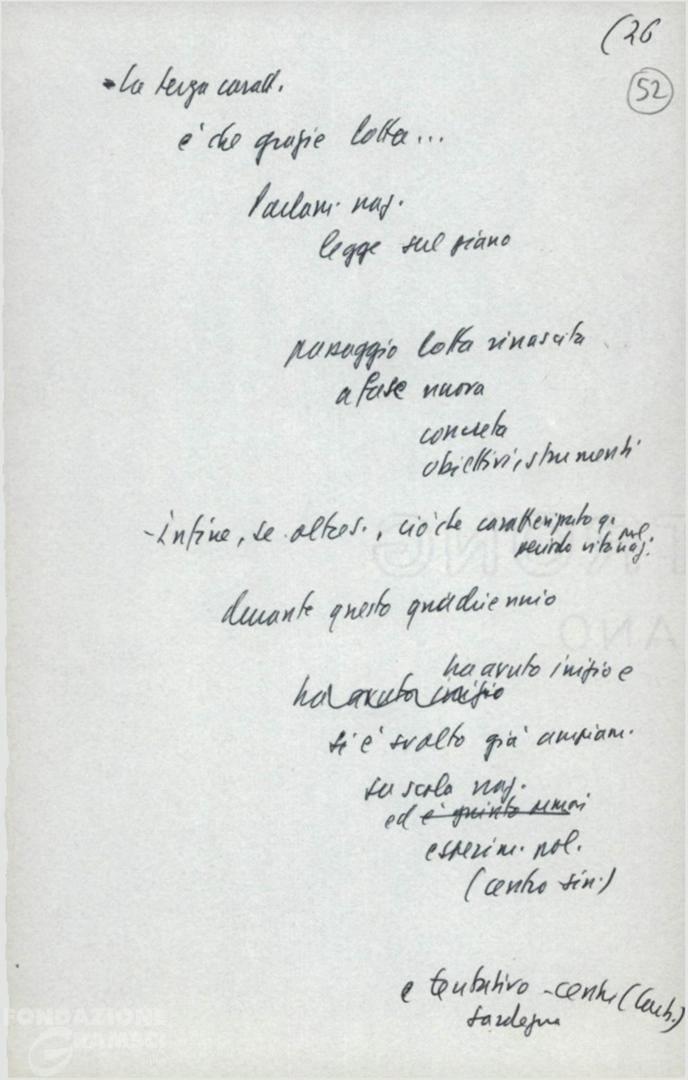 (26
52
- la terza caratt.
è che grazie lotta...
Parlam. naz.
legge sul piano
passaggio lotta rinascita
a fase nuova
concreta
obiettivi, strumenti
- Infine, se altres., ciò che caratterizzato q.
periodo vita naz.
durante questo quadriennio
ha avuto inizio e
ha avuto inizio
si è svolto già ampiam.
su scala naz.
ed è giunto ormai
esperim. pol.
(centro sin.)
e tentativo - centr
Sardegna
FONDAZIONE
GRAMSCI